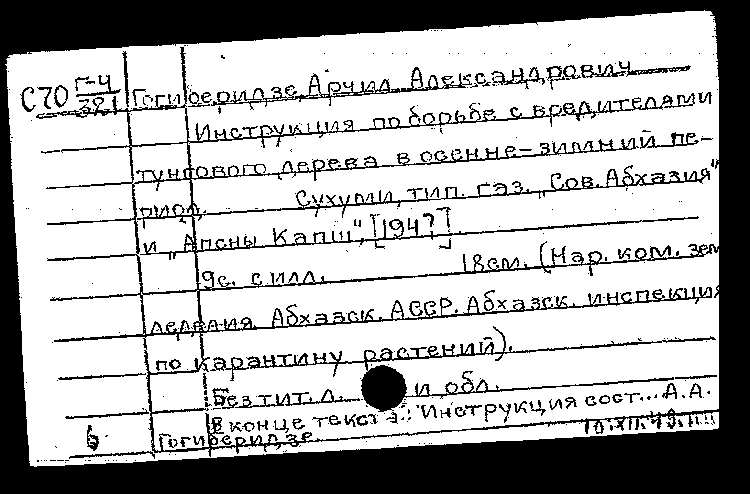 С70 Г-4
381 Гогиберидзе, Арчил Александрович
Инструкция по борьбе с вредителями
тунгового дерева в осенне-зимний пе-
риод. Сухуми, тип. газ. „Сов. Абхазия"
и „Апсны Капш", [194?]
9с. с илл. 18см. (Нар. ком. зем
леделия Абхазск. АССР. Абхазск. инспекция
по карантину растений).
Без тит. л. и обл.
В конце текста: Инструкция сост... А.А.
6 Гогиберидзе.